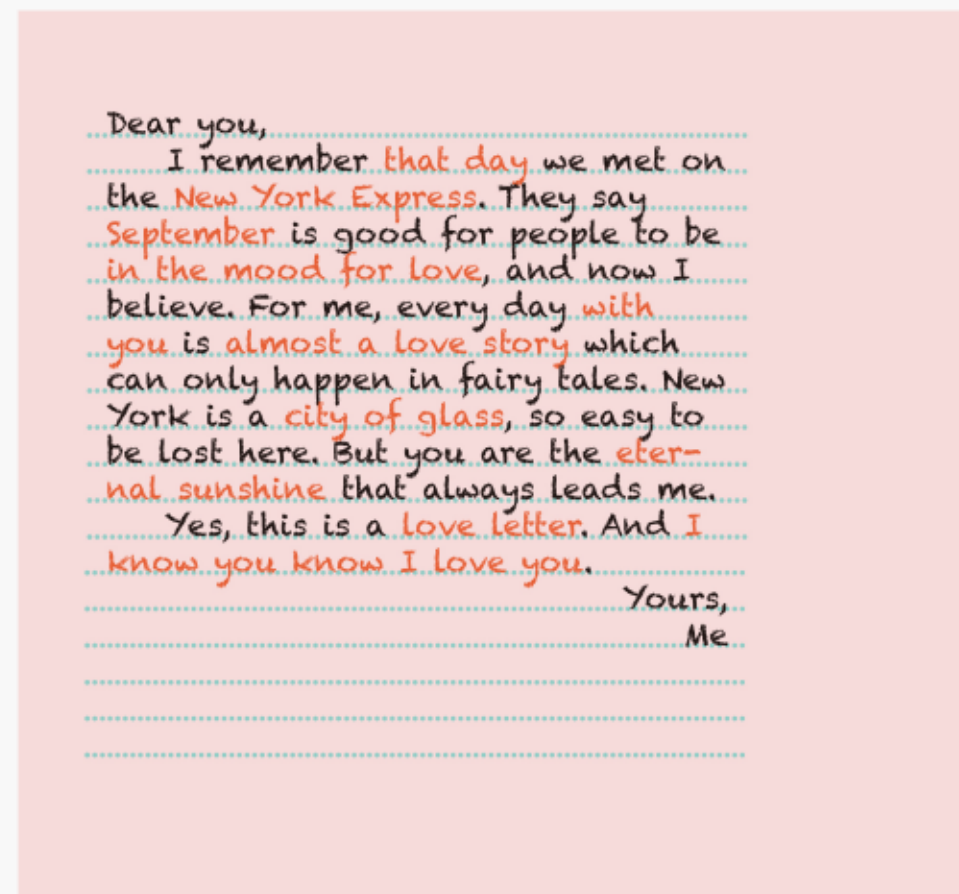 Dear you,
I remember that day we met on
the New York Express. They say
September is good for people to be
in the mood for love, and now I
believe. For me, every day with
you is almost a love story which
can only happen in fairy tales. New
York is a city of glass, so easy to
be lost here. But you are the eter-
nal sunshine that always leads me.
Yes, this is a love letter. And I
know you know I love you.
Yours,
Me